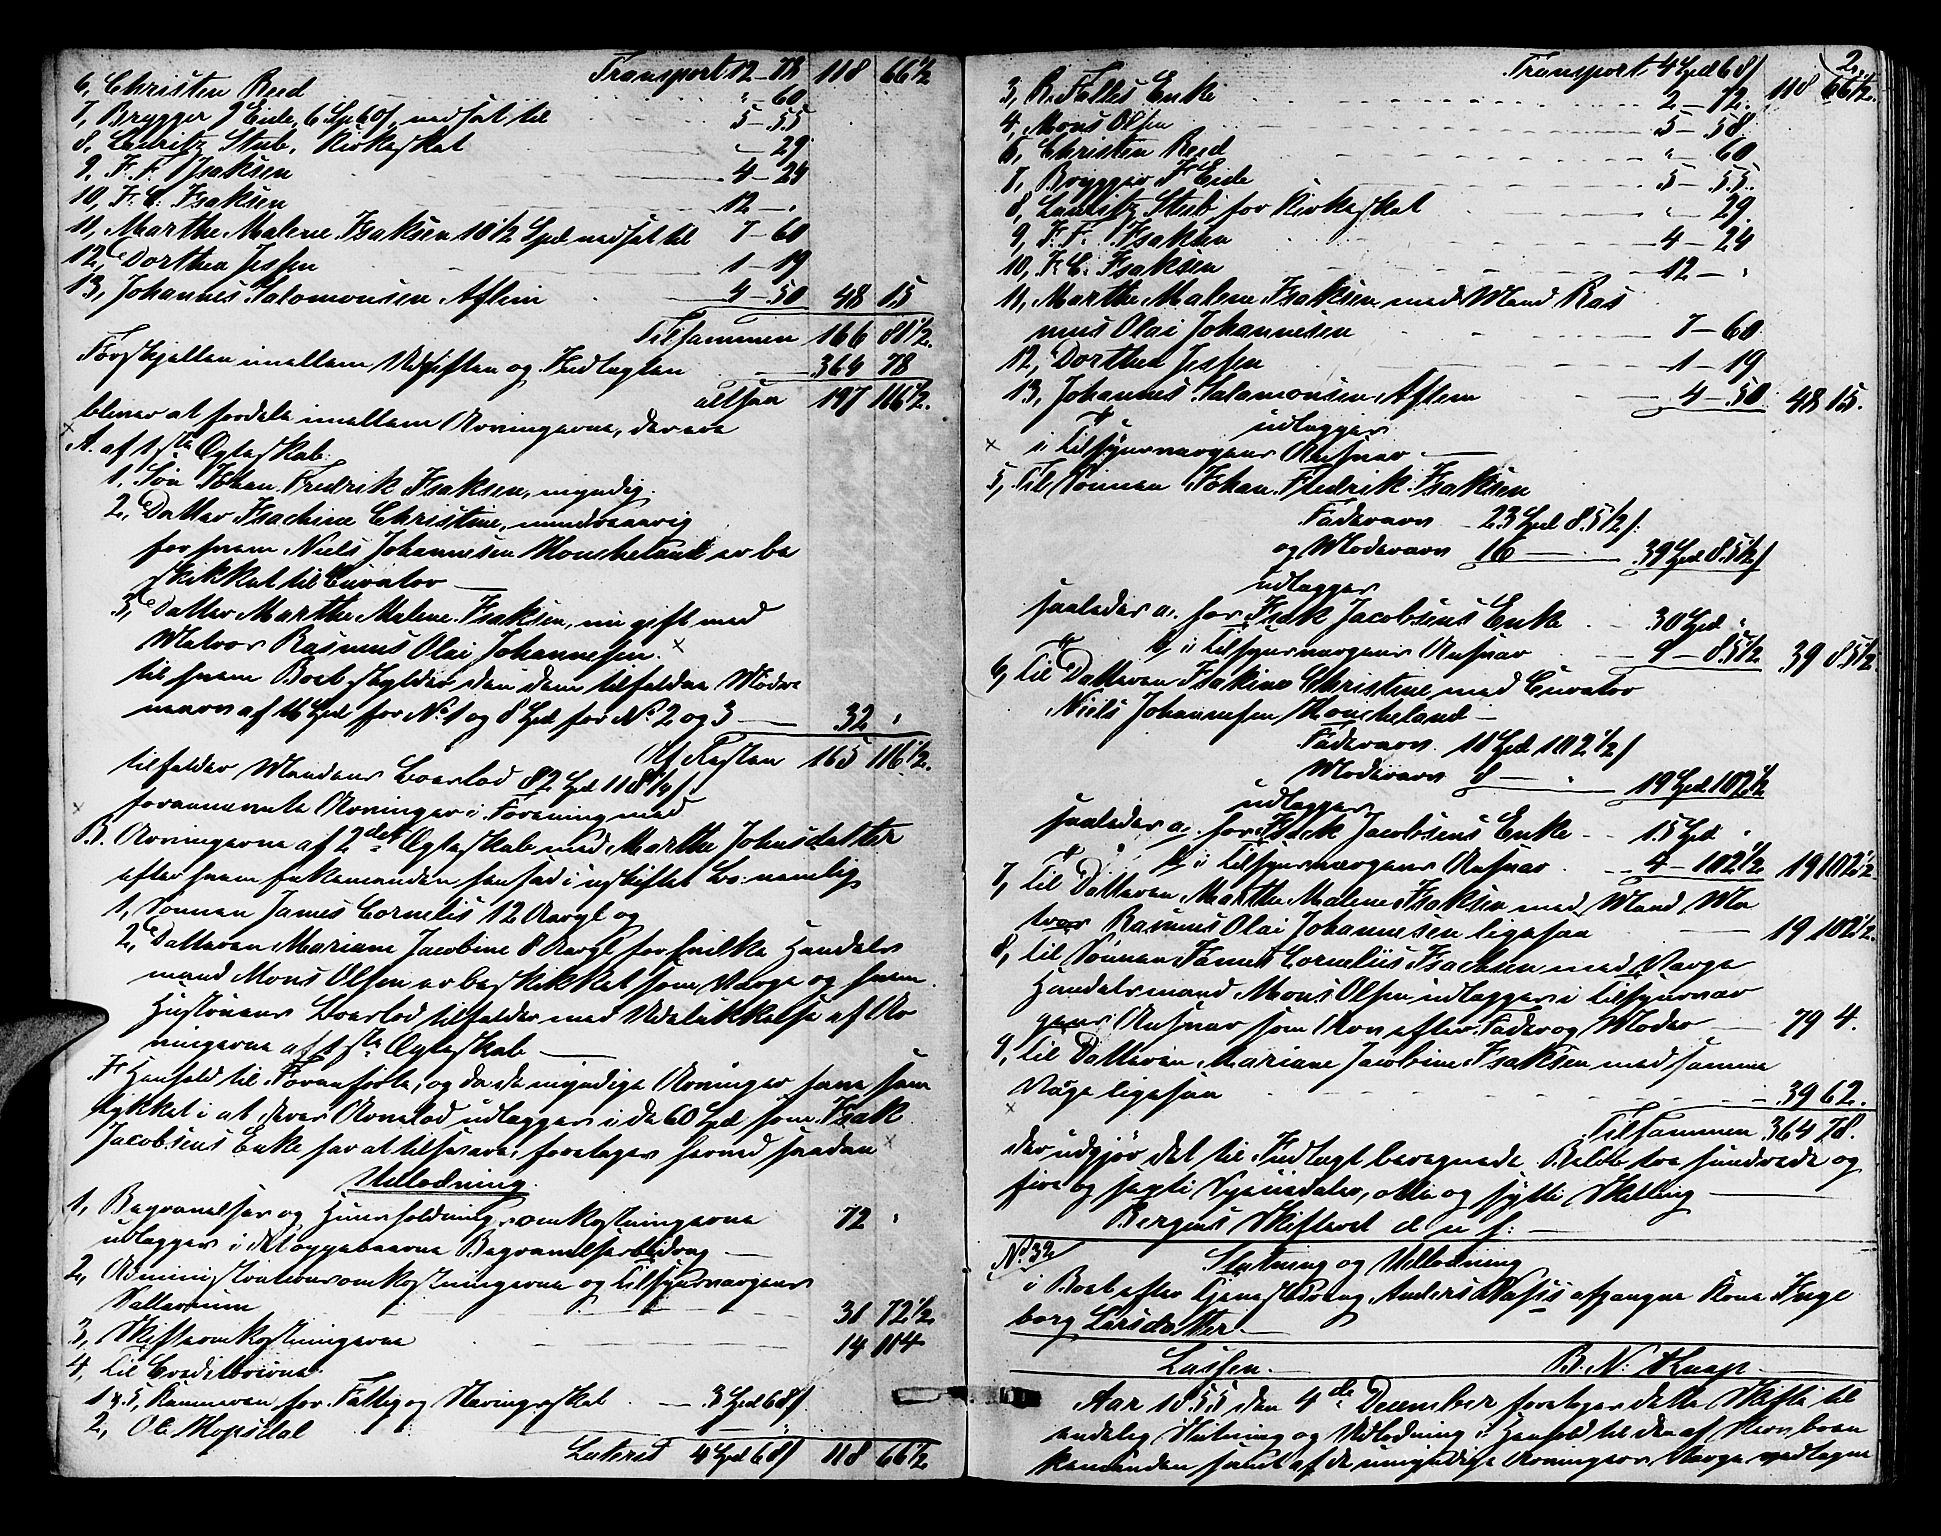 Transport 12 - 78 118 66 1/2
6, Christen Reed " 60
7, Brygger J Eide, 6 Sp 60 s, nedsat til 5 - 55
8, Lauritz Stub, Kirkeskat - 29
9, F. F. Isaksen 4 - 24
10, F. C. Isaksen 12 - "
11, Marthe Malene Isaksen 10 1/2 Spd nedsat til 7 - 60
12, Dorthea Jessen 1 - 19
13, Johannes Salomonsen Aflem 4 - 50 48 15
Tilsammen 166 81 1/2.
Forskjellen imellem Udgiften og Indtægten 364 78
altsaa 197 116 1/2.
bliver at fordele imellem Arvingerne, der ere
A. af 1ste Ægteskab:
1, Søn Johan Fredrik Isaksen, myndig.
2, Datter Isachine Christine, mindreaarig
for hvem Niels Johannesen Houcheland er be
skikket til Curator
3, Datter Marthe Malene Isaksen, nu gift med
Matros Rasmus Olai Johannesen.
til hvem Boet skylder den dem tilfaldne Mødre
nearv af 16 Spd for No 1 og 8 Spd for No 2 og 3 32 "
Af Resten 165 116 1/2.
tilfalder Mandens Boeslod 82 Spd 118 1/4 s
forannævnte Arvinger i Forening med
B. Arvingerne af 2det Ægteskab med Marthe Johnsdatter
efter hvem Enkemanden hensad i uskiftet Bo: nemlig
1, Sønnen James Cornelis 12 Aar gl og
2, Datteren Mariane Jacobine 8 Aar gl for hvilke Handels
mand Mons Olsen er beskikket som Værge og hvem
Hustruens Boeslod tilfalder med Udelukkelse af Ar
vingerne af 1ste Ægteskab
I Henhold til Foranførte, og da de myndige Arvinger have sam
tykket i at deres Arvelod udlægges i de 60 Spd som Isak
Jacobsens Enke har at tilsvare, foretages herved saadan
Udlodning.
1, Begravelses og Huusholdningsomkostningerne 72 "
udlægges i det oppebaarne Begravelsesbidrag
2, Administrationsomkostningerne og Tilsynsværgens
Sallarium 31 72 1/2
3, Skifteomkostningerne 14 114
4, til Creditorerne
1 & 5, Kæmneren for Fattig og Næringsskat 3 Spd 68 s
2, O: Hopsdal
Lateris 4 Spd 68 s 118 66 1/2
2.
Transport 4 Spd 68 s 118 66 1/2.
3, R. Falles Enke 2 - 72.
4, Mons Olsen 5 - 58
6, Christen Reed " 60
7, Brygger J Eide 5 - 55.
8, Lauritz Stub for Kirkeskat " - 29.
9, F. F. Isaksen 4 - 24
10, F. C. Isaksen 12 - "
11, Marthe Malene Isaksen med Mand Ras
mus Olai Johannesen 7 - 60
12, Dorthea Jessen 1 - 19
13, Johannes Salomonsen Aflem 4 - 50 48 15.
udlægges
i Tilsynsværgens Ansvar
5, Til Sønnen Johan Fredrik Isaksen
Faderarv 23 Spd 85 1/2 s.
og Moderarv 16 39 Spd 85 1/2 s
udlægges
saaledes a. for Isak Jacobsens Enke 30 Spd "
b, i Tilsynsværgens Ansvar 9 - 85 1/2 39 85 1/2.
6, til Datteren Isakine Christine med Curator
Niels Johannesen Houcheland
Faderarv. 11 Spd 102 1/2 s
Moderarv 8 - " 19 Spd 102 1/2
udlægges
saaledes a. for Isack Jacobsens Enke 15 Spd "
b, i Tilsynsværgens Ansvar 4 - 102 1/2 19 102 1/2
7, til Datteren Marthe Malene Isaksen med Mand Ma
tros Rasmus Olai Johannesen ligesaa 19 102 1/2.
8, til Sønnen James Cornelius Isachsen med Værge
Handelsmand Mons Olsen udlægges i Tilsynsvær
gens Ansvar som Arv efter Fader og Moder 79 4.
9, til Datteren Mariane Jacobine Isaksen med samme
Værge ligesaa 39 62.
Tilsammen 364 78.
der udgjør det til Indtægt beregnede Beløb tre hundrede og
fire og sexti Speciedaler, otte og sytti Skilling
Bergens Skifteret d u s:
No 32 Slutning og Udlodning
i Boet efter Tjenestedreng Anders afgangne Kone Inge
borg Larsdatter
Lassen. B. N: Knap.
Aar 1855 den 4de December foretoges dette Skifte til
endelig Slutning og Udlodning i Henhold til den af
kemanden samt af de umyndige Arvingers Værge vedtagne